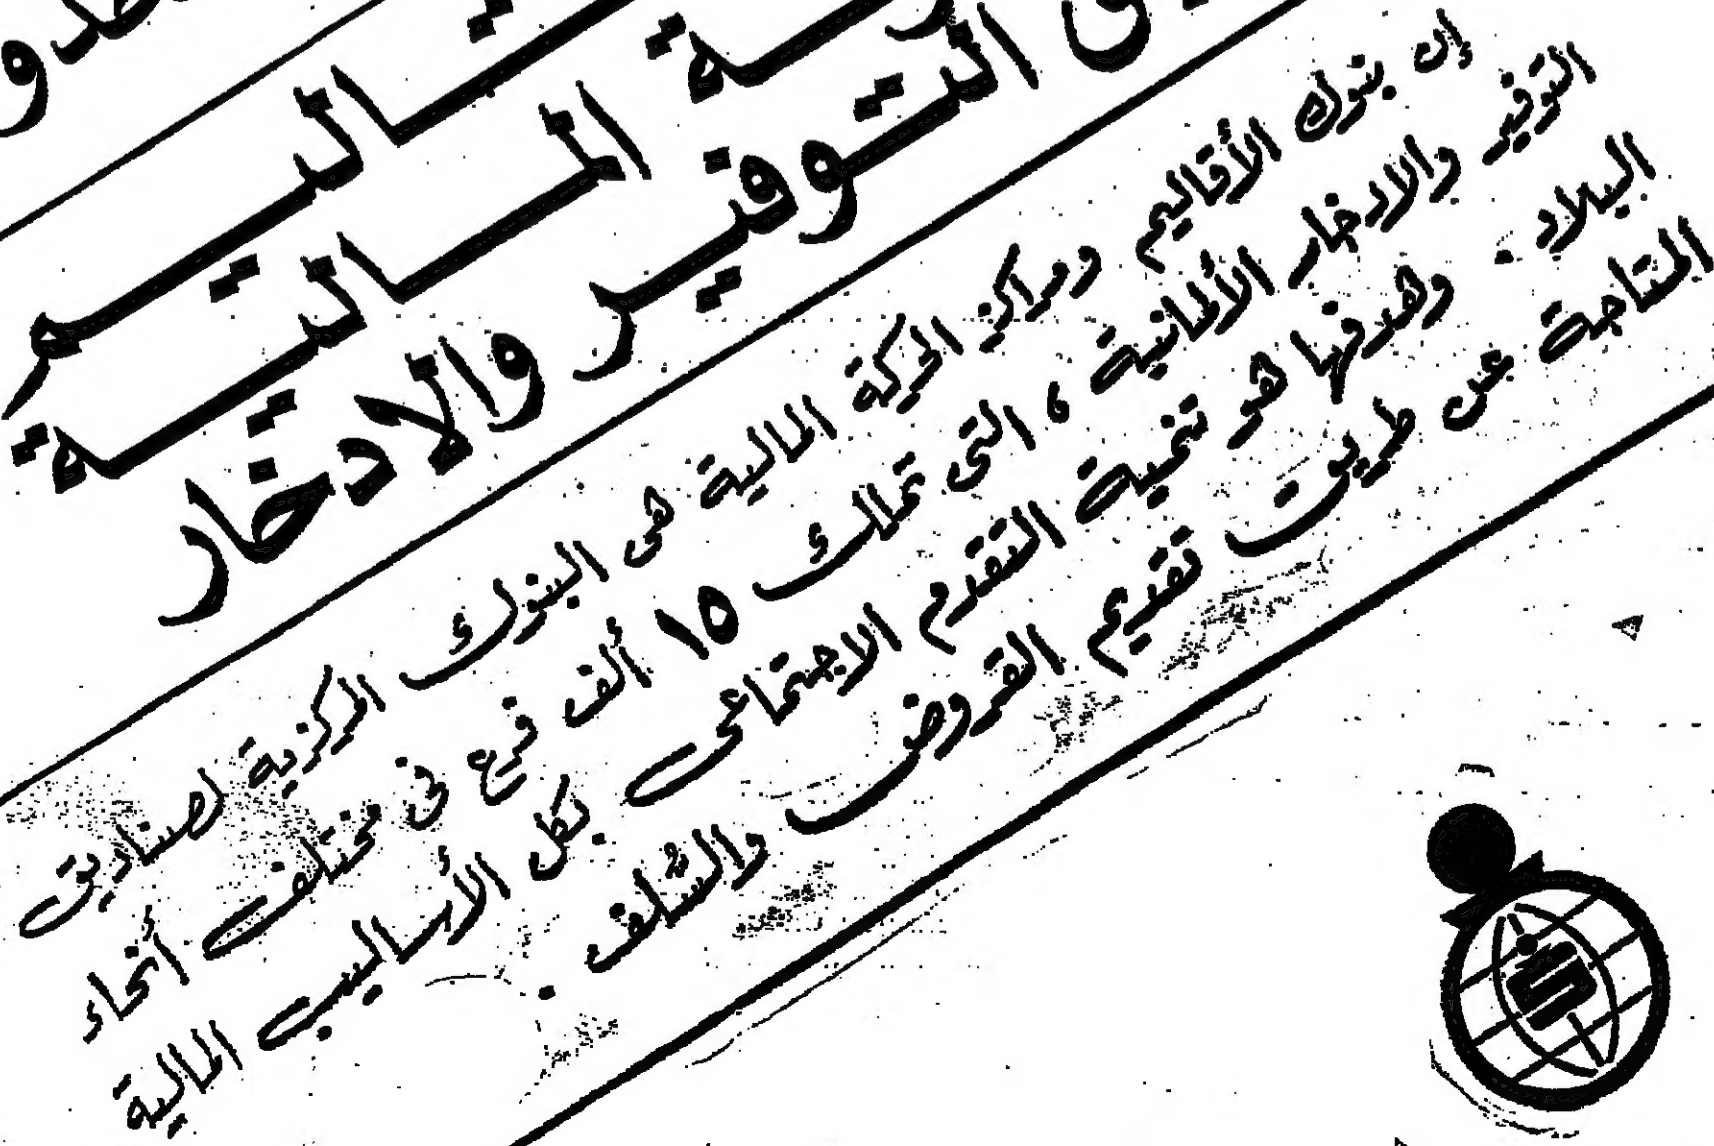 الماليــة
التوفيــر والادخار
إن بنوك الأقاليم ومراكز الحركة المالية هى البنوك المركزية لصناديق
التوفير والادخار الألمانية ، التى تملك ١٥ ألف فرع فى مختلف أنحاء
البلاد . وهدفها هو تنمية التقدم الاجتماعى بكل الأساليب المالية
المتاحة عن طريق تقديم القروض والسلف .